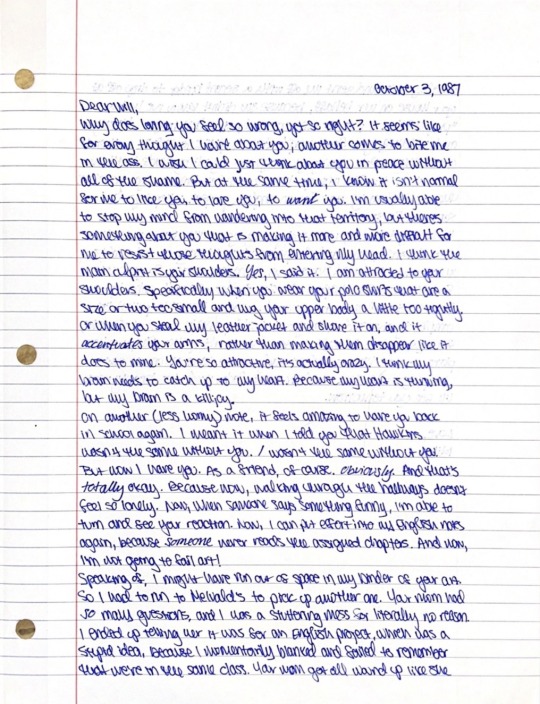 October 3, 1987
Dear Will,
Why does loving you feel so wrong, yet so right? It seems like
for every thought I have about you, another comes to bite me
in the ass. I wish I could just think about you in peace without
all of the shame. But at the same time, I know it isn't normal
for me to like you, to love you, to want you. I'm usually able
to stop my mind from wandering into that territory, but theres
something about you that is making it more and more difficult for
me to resist those thoughts from entering my head. I think the
main culprit is your shoulders. Yes, I said it. I am attracted to your
shoulders. Specifically when you wear your polo shirts that are a
size or two too small and hug your upper body a little too tightly.
Or when you steal my leather jacket and shove it on, and it
accentuates your arms, rather than making them disappear like it
does to mine. You're so attractive, it's actually crazy. I think my
brain needs to catch up to my heart. Because my heart is running,
but my brain is a killjoy.
On another (less horny) note, it feels amazing to have you back
in school again. I meant it when I told you that Hawkins
wasn't the same without you. I wasn't the same without you.
But now I have you. As a friend, of course. Obviously. And that's
totally okay. Because now, walking through the hallways doesn't
feel so lonely. Now, when someone says something funny, I'm able to
turn and see your reaction. Now, I can put effort into our English notes
again, because someone never reads the assigned chapters. And now,
I'm not going to fail art!
Speaking of, I might have run out of space in my binder of your art.
So I had to run to Melvald's to pick up another one. Your mom had
so many questions, and I was a stuttering mess for literally no reason.
I ended up telling her it was for an English project, which was a
stupid idea, because I momentarily blanked and failed to remember
that we're in the same class. Your mom got all wound up like she